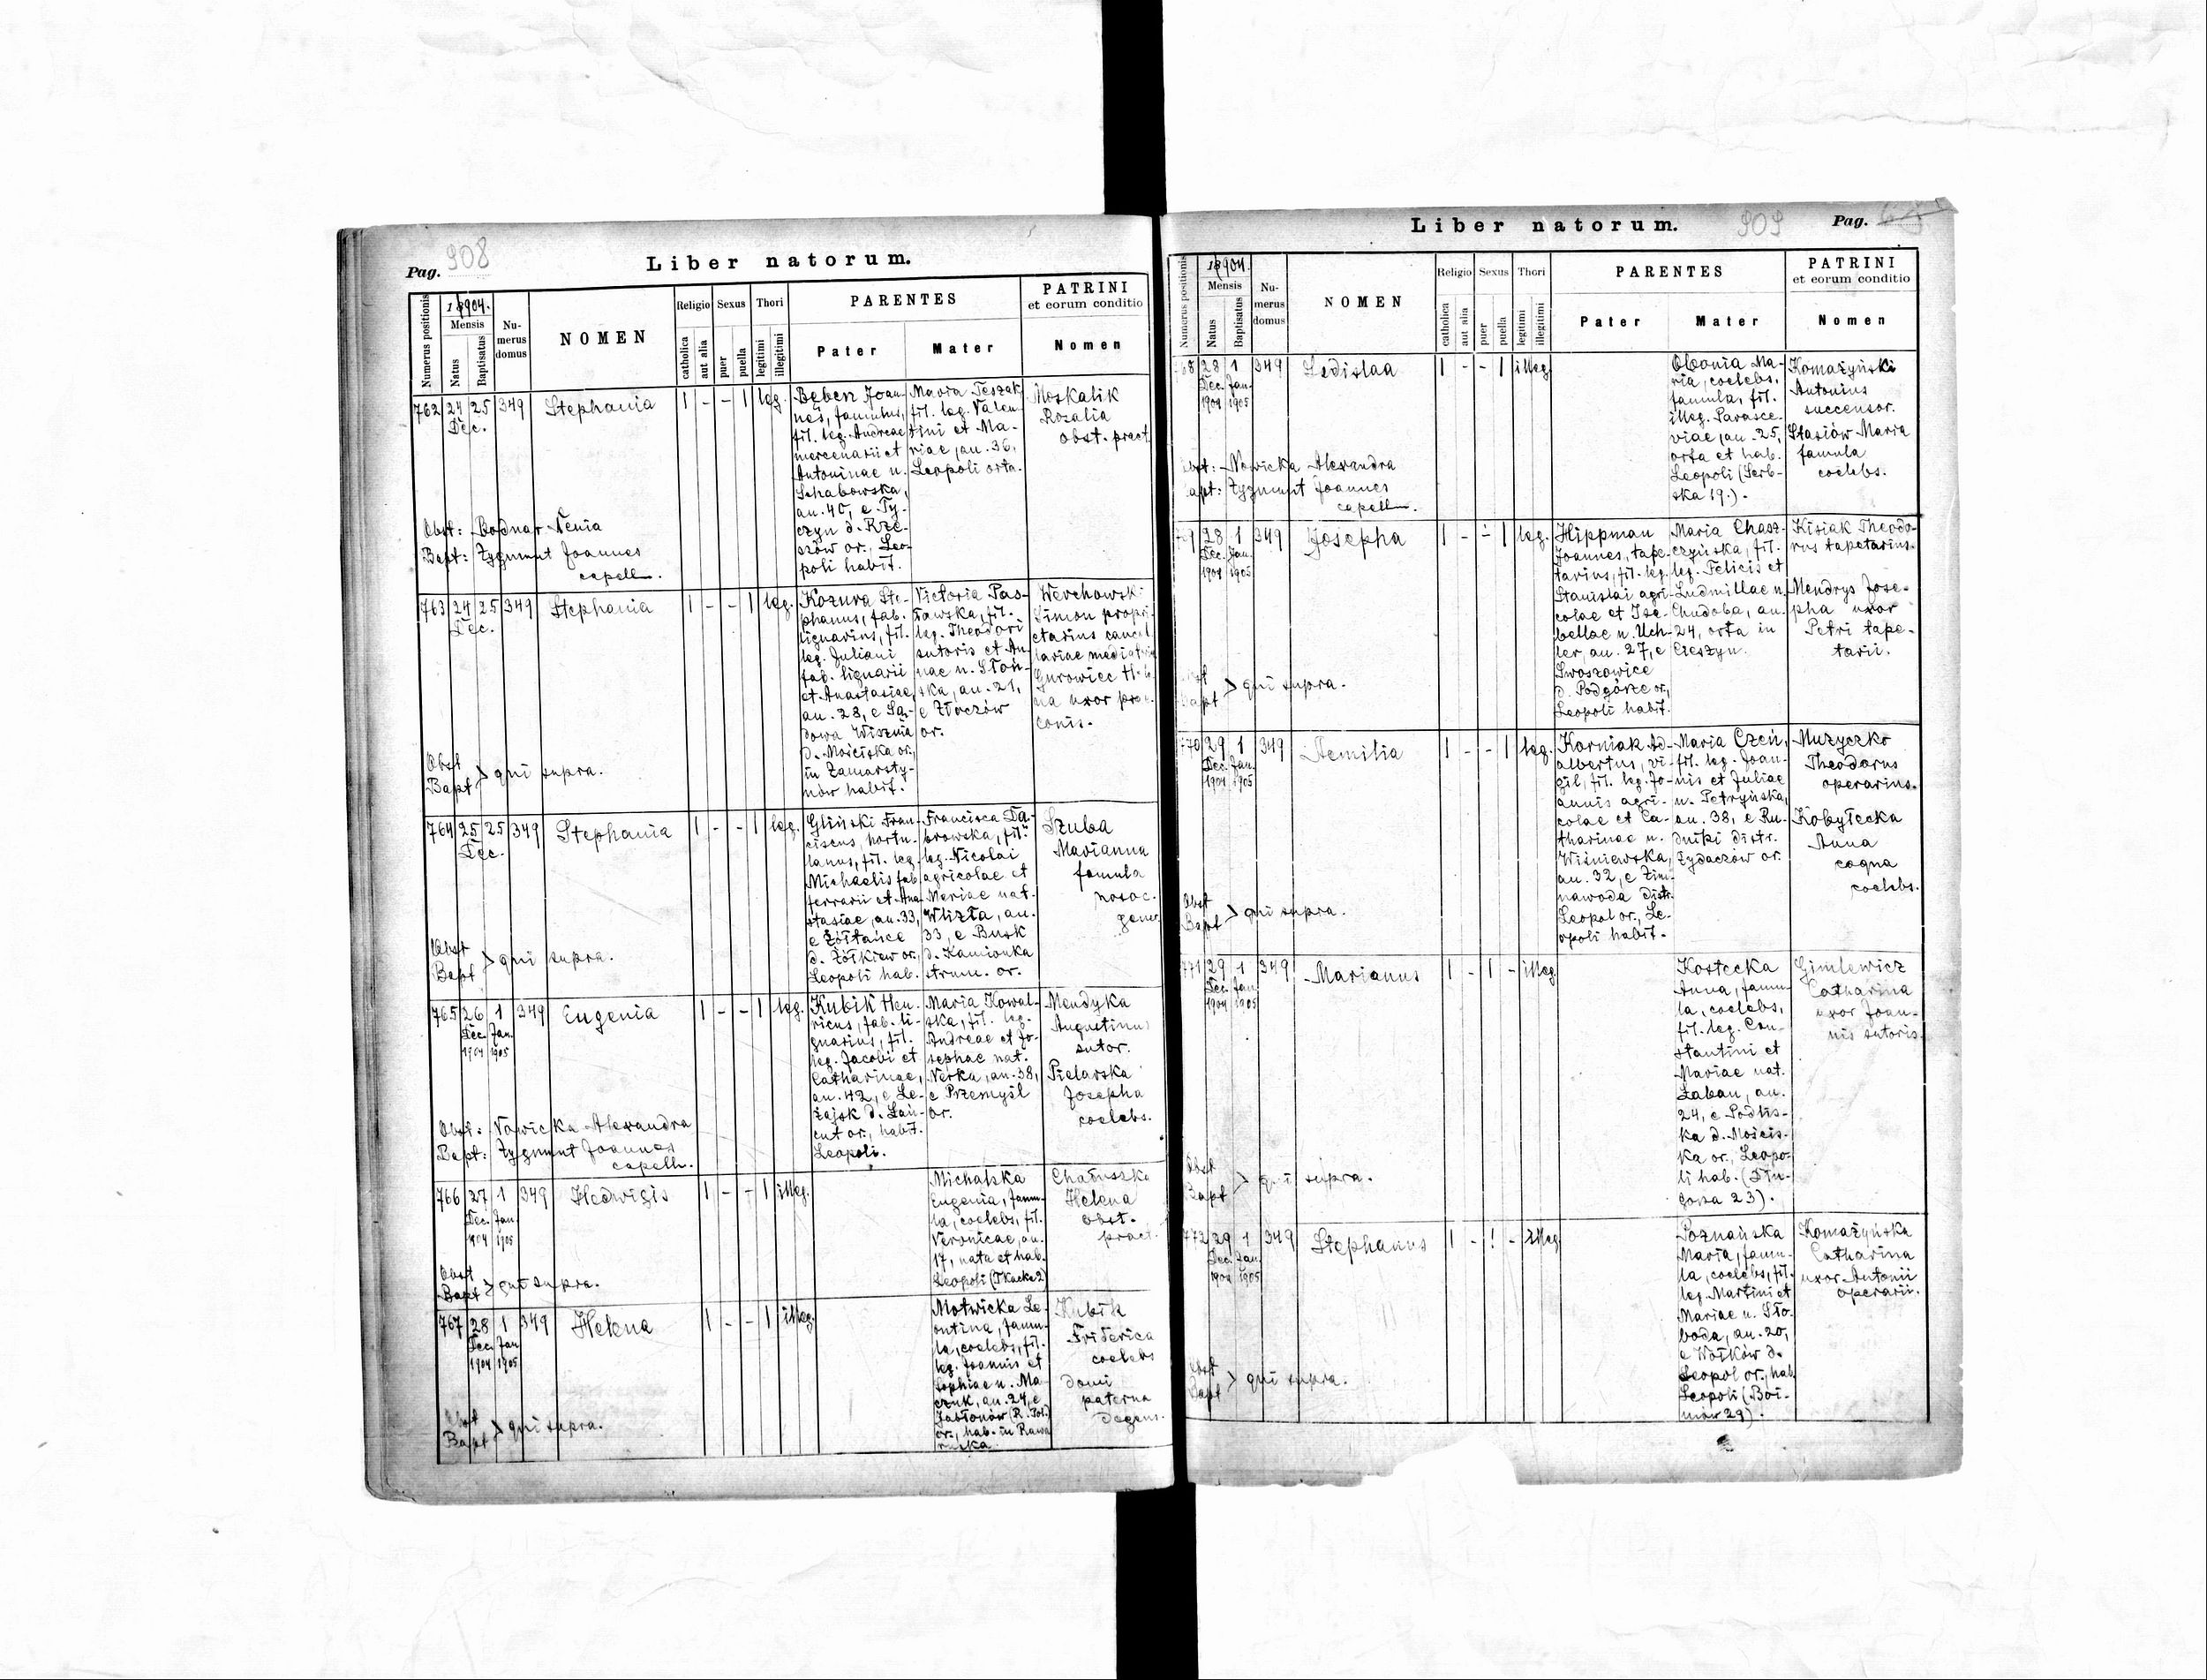 Pag. 908
Liber natorum.
Numerus positionis
18904.
Mensis
Natus
Baptisatus
Nu-
merus
domus
NOMEN
Religio
catholica
aut alia
Sexus
puer
puella
Thori
legitimi
illegitimi
PARENTES
Pater
Mater
PATRINI
et eorum conditio
Nomen
762 24 25 349 Stephania 1 - - 1 leg.
Dec.
Beben Joan-
nes, famulus,
fil. leg. Andreae
mercenarii et
Antoninae n.
Schabowska,
an. 40, e Ty-
czyn d. Rze-
szów or., Leo-
poli habit.
Maria Teszak
fil. leg. Valen-
tini et Ma-
riae, an. 36,
Leopoli orta.
Moskalik
Rosalia
obst. pract.
Obst: Bodnar Xenia
Bapt: Zygmunt Joannes
capell.
763 24 25 349 Stephania 1 - - 1 leg.
Dec.
Kozura Ste-
phanus, fab.
lignarius, fil.
leg. Juliani
fab. lignarii
et Anastasiae,
an. 28, e Są-
dowa Wisznia
d. Mościska or.,
in Zamarsty-
nów habit.
Victoria Pas-
ławska, fil.
leg. Theodori
sutoris et An-
nae n. Słoń-
ska, an. 21,
e Złoczów
or.
Werchowski
Simon propri-
etarius cancel-
lariae
Gurowiec
na uxor prae-
conis.
Obst
Bapt > qui supra.
764 25 25 349 Stephania 1 - - 1 leg.
Dec.
Gliński Fran-
ciscus, hortu-
lanus, fil. leg.
Michaelis fab.
ferrarii et Ana-
stasiae, an. 33,
e Żółtańce
d. Żółkiew or.,
Leopoli hab.
Francisca Dą-
browska, fil.
leg. Nicolai
agricolae et
Mariae nat.
Wlizła, an.
33, e Busk
d. Kamionka
strum. or.
Szuba
Marianna
famula
nosoc.
gener.
Obst
Bapt > qui supra.
765 26 1 349 Eugenia 1 - - 1 leg.
Dec. Jan.
1904 1905
Kubik Hen-
ricus, fab. li-
gnarius, fil.
leg. Jacobi et
Catharinae,
an. 42, e Le-
żajsk d. Łań-
cut or., habit.
Leopoli.
Maria Kowal-
ska, fil. leg.
Andreae et Jo-
sephae nat.
Verka, an. 38,
e Przemyśl
or.
Mendyka
Augustinus
sutor.
Pielarska
Josepha
coelebs.
Obst: Nowicka Alexandra
Bapt: Zygmunt Joannes
capell.
766 27 1 349 Hedwigis 1 - - 1 illeg.
Dec. Jan.
1904 1905
Michalska
Eugenia, famu-
la, coelebs, fil.
Veronicae, an.
17, nata et hab.
Leopoli (Tkacka 2)
Chaduszko
Helena
obst.
pract.
Obst
Bapt > qui supra.
767 28 1 349 Helena 1 - - 1 illeg.
Dec. Jan.
1904 1905
Motwicka Le-
ontina, famu-
la, coelebs, fil.
leg. Joannis et
Sophiae n. Ma-
czuk, an. 24, e
Jabłonów (R. Pol.)
or., hab. in Rawa
ruska.
Kubik
Friderica
coelebs
domi
paterna
degens.
Obst
Bapt > qui supra.
Liber natorum. 909 Pag.
Numerus positionis
18904.
Mensis
Natus
Baptisatus
Nu-
merus
domus
NOMEN
Religio
catholica
aut alia
Sexus
puer
puella
Thori
legitimi
illegitimi
PARENTES
Pater
Mater
PATRINI
et eorum conditio
Nomen
68 28 1 349 Ladislaa 1 - - 1 illeg.
Dec. Jan.
1904 1905
Obonia Ma-
ria, coelebs,
famula, fil.
illeg. Parasce-
viae, an. 25,
orta et hab.
Leopoli (Serb-
ska 19.).
Komażyński
Antonius
successor.
Stasiów Maria
famula
coelebs.
Obst: Nowicka Alexandra
Bapt: Zygmunt Joannes
capell.
349 Josepha 1 - - 1 leg.
28 1
Dec. Jan.
1904 1905
Hippman
Joannes, tape-
tarius, fil. leg.
Stanislai agri-
colae et Isa-
bellae n. Uch-
ler, an. 27, e
Swoszowice
d. Podgórze or.,
Leopoli habit.
Maria Chasz-
czyńska, fil.
leg. Felicis et
Ludmillae n.
Chudoba, an.
24, orta in
Cieszyn.
Kisiak Theodo-
rus tapetarius.
Mendrys Jose-
pha uxor
Petri tape-
tarii.
Obst
Bapt > qui supra.
770 29 1 349 Aemilia 1 - - 1 leg.
Dec. Jan.
1904 1905
Korniak Ad-
albertus, vi-
gil, fil. leg. Jo-
annis agri-
colae et Ca-
tharinae n.
Wiśniewska,
an. 32, e Zim-
nawoda distr.
Leopol or., Le-
opoli habit.
Maria Czeń,
fil. leg. Joan-
nis et Juliae
n. Petryńska,
an. 38, e Ru-
dniki distr.
Żydaczów or.
Muzyczko
Theodorus
operarius.
Kobyłecka
Anna
coqua
coelebs.
Obst
Bapt > qui supra.
771 29 1 349 Marianus 1 - 1 - illeg.
Dec. Jan.
1904 1905
Kostecka
Anna, famu-
la, coelebs,
fil. leg. Con-
stantini et
Mariae nat.
Łaban, an.
24, e Podlis-
ka d. Mościs-
ka or., Leopo-
li hab. (Dłu-
gosza 23).
Gimlewicz
Catharina
uxor Joan-
nis sutoris.
Obst
Bapt > qui supra.
772 29 1 349 Stephanus 1 - 1 - illeg.
Dec. Jan.
1904 1905
Poznańska
Maria, famu-
la, coelebs, fil.
leg. Martini et
Mariae n. Sło-
boda, an. 20,
e Wołków d.
Leopol or., hab.
Leopoli (Boi-
mów 29).
Komażyńska
Catharina
uxor Antonii
operarii.
Obst
Bapt > qui supra.